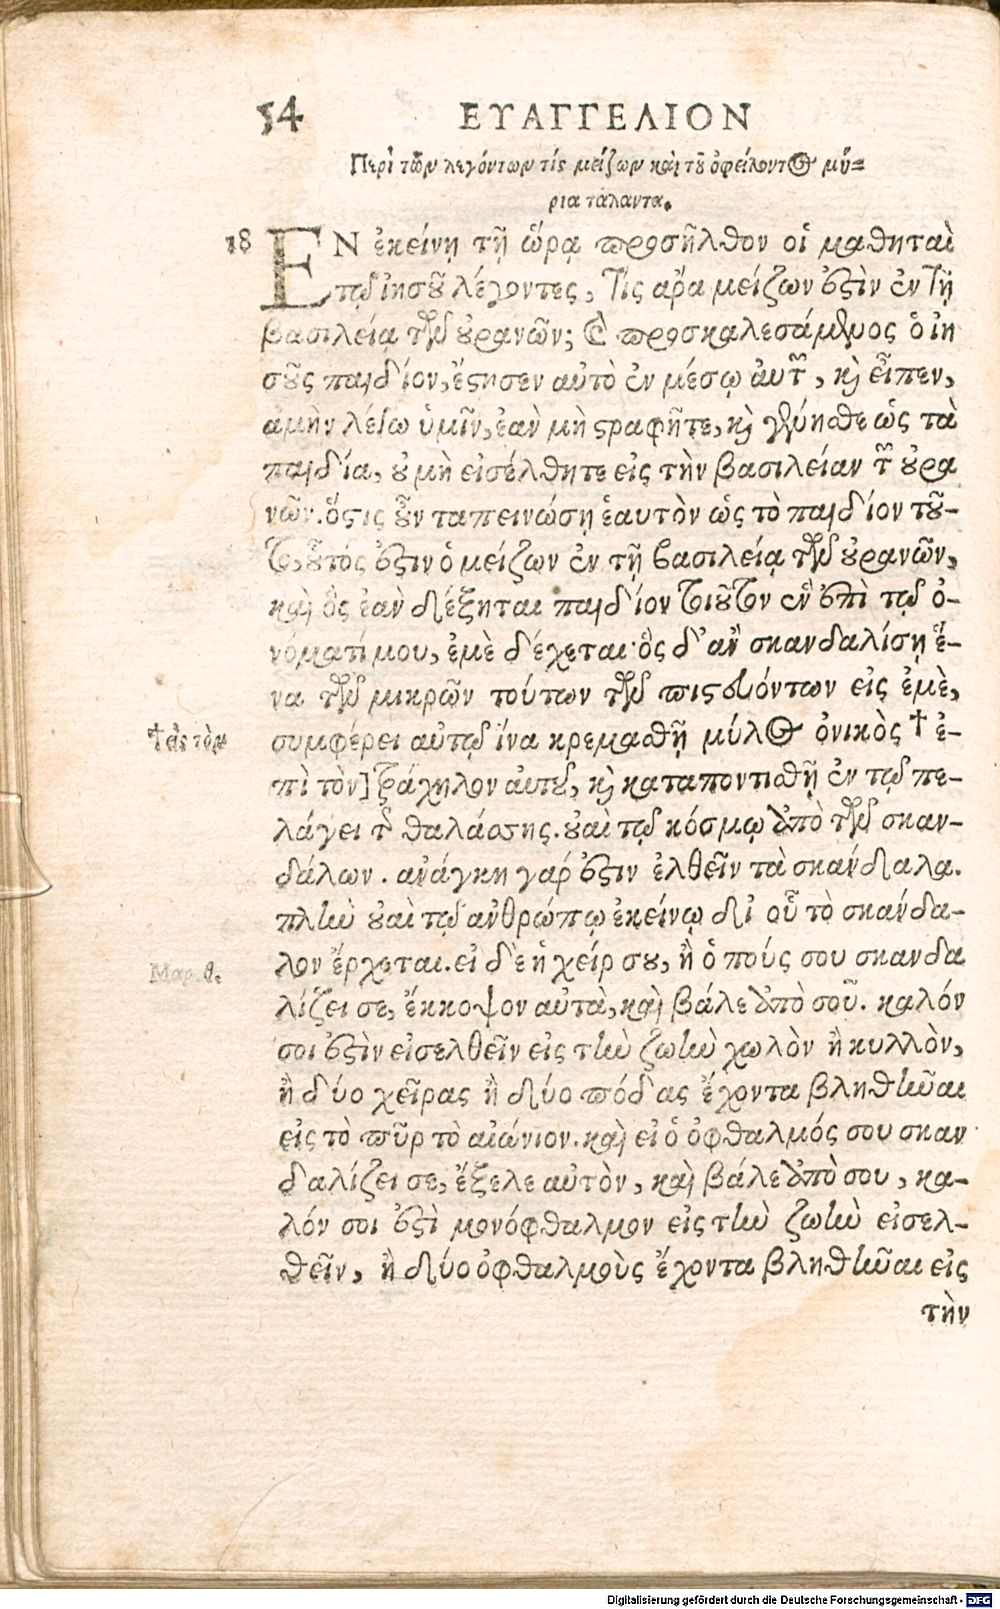 54 ΕΥΑΓΓΕΛΙΟΝ
Περὶ τῶν λεγόντων τίς μείζων καὶ τοῦ ὀφείλοντος μύ-
ρια τάλαντα.
18 ΕΝ ἐκείνῃ τῇ ὥρᾳ προσῆλθον οἱ μαθηταὶ
τῷ ἰησοῦ λέγοντες, Τίς ἄρα μείζων ἐστὶν ἐν τῇ
βασιλείᾳ τῶν οὐρανῶν; Καὶ προσκαλεσάμενος ὁ ἰη
σοῦς παιδίον, ἔστησεν αὐτὸ ἐν μέσῳ αὐτῶν, καὶ εἶπεν,
ἀμὴν λέγω ὑμῖν, ἐὰν μὴ στραφῆτε, καὶ γένησθε ὡς τὰ
παιδία, οὐ μὴ εἰσέλθητε εἰς τὴν βασιλείαν τῶν οὐρα
νῶν. ὅστις οὖν ταπεινώσῃ ἑαυτὸν ὡς τὸ παιδίον τοῦ-
το, οὗτός ἐστιν ὁ μείζων ἐν τῇ βασιλείᾳ τῶν οὐρανῶν,
καὶ ὃς ἐὰν δέξηται παιδίον τοιοῦτον ἓν ἐπὶ τῷ ὀ-
νόματί μου, ἐμὲ δέχεται· ὃς δ' ἂν σκανδαλίσῃ ἕ-
να τῶν μικρῶν τούτων τῶν πιστευόντων εἰς ἐμὲ,
† εἰς τὸν
συμφέρει αὐτῷ ἵνα κρεμασθῇ μύλος ὀνικὸς † ἐ-
πὶ τὸν] τράχηλον αὐτοῦ, καὶ καταποντισθῇ ἐν τῷ πε-
λάγει τῆς θαλάσσης. οὐαὶ τῷ κόσμῳ ἀπὸ τῶν σκαν-
δάλων. ἀνάγκη γάρ ἐστιν ἐλθεῖν τὰ σκάνδαλα.
πλὴν οὐαὶ τῷ ἀνθρώπῳ ἐκείνῳ δι' οὗ τὸ σκάνδα-
Μαρ. θ.
λον ἔρχεται. εἰ δὲ ἡ χείρ σου, ἢ ὁ πούς σου σκανδα
λίζει σε, ἔκκοψον αὐτὰ, καὶ βάλε ἀπὸ σοῦ. καλόν
σοι ἐστὶν εἰσελθεῖν εἰς τὴν ζωὴν χωλὸν ἢ κυλλὸν,
ἢ δύο χεῖρας ἢ δύο πόδας ἔχοντα βληθῆναι
εἰς τὸ πῦρ τὸ αἰώνιον. καὶ εἰ ὁ ὀφθαλμός σου σκαν
δαλίζει σε, ἔξελε αὐτὸν, καὶ βάλε ἀπὸ σου, κα-
λόν σοι ἐστὶ μονόφθαλμον εἰς τὴν ζωὴν εἰσελ-
θεῖν, ἢ δύο ὀφθαλμοὺς ἔχοντα βληθῆναι εἰς
τὴν
Digitalisierung gefördert durch die Deutsche Forschungsgemeinschaft - DFG